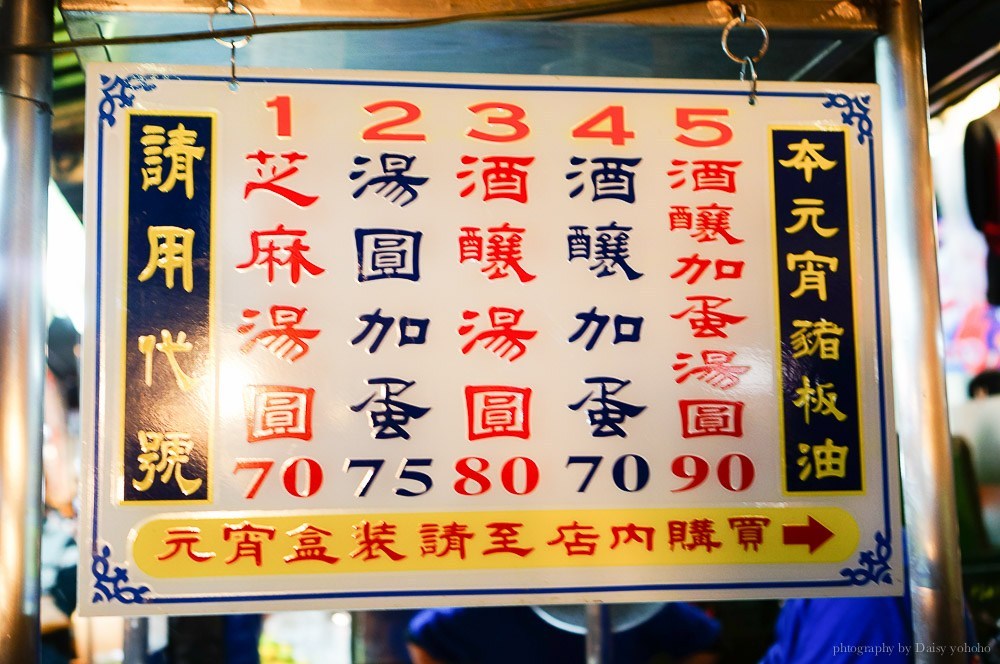 請用代號
1 芝麻湯圓 70
2 湯圓加蛋 75
3 酒釀湯圓 80
4 酒釀加蛋 70
5 酒釀加蛋湯圓 90
本元宵豬板油
元宵盒裝請至店內購買
photography by Daisy yohoho